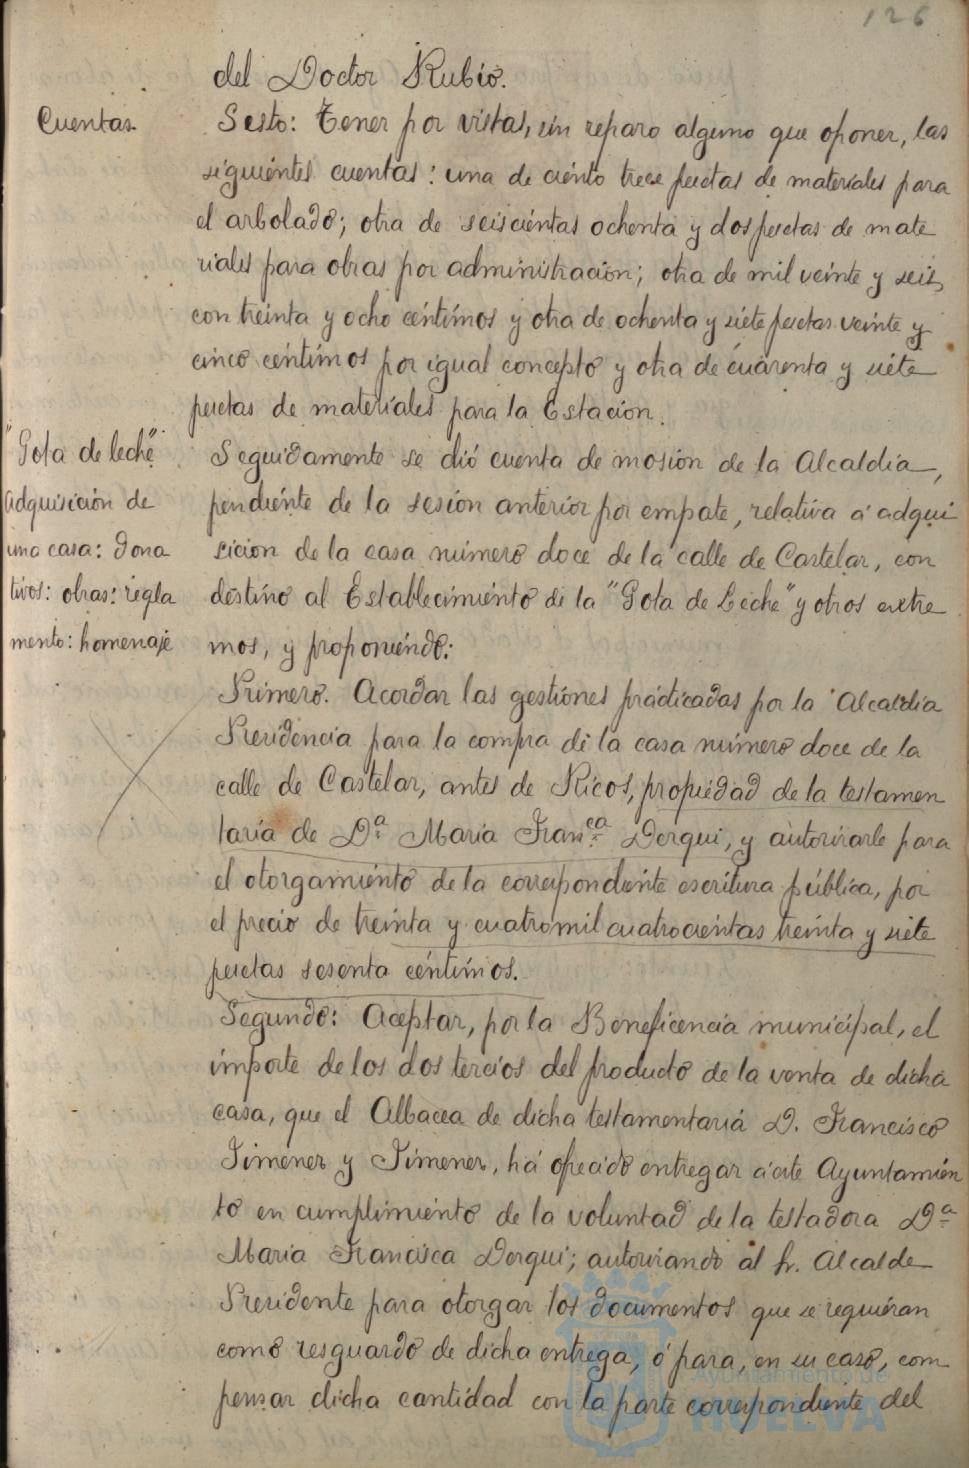 126
del Doctor Rubio.
Cuentas.
Sesto: Tener por vistas, sin reparo alguno que oponer, las
siguientes cuentas: una de ciento trece pesetas de materiales para
el arbolado; otra de seiscientas ochenta y dos pesetas de mate
riales para obras por administracion; otra de mil veinte y seis,
con treinta y ocho céntimos y otra de ochenta y siete pesetas veinte y
cinco céntimos por igual concepto y otra de cuarenta y siete
pesetas de materiales para la Estacion.
"Gota de leche"
Adquisición de
una casa: dona
tivos: obras: regla
mento: homenaje
Seguidamente se dió cuenta de mosión de la Alcaldia,
pendiente de la sesion anterior por empate, relativa á adqui
sicion de la casa número doce de la calle de Castelar, con
destino al Establecimiento de la "Gota de Leche" y otros extre
mos, y proponiendo:
Primero. Acordar las gestiones prácticadas por la Alcaldia
Presidencia para la compra de la casa número doce de la
calle de Castelar, antes de Ricos, propiedad de la testamen
taría de Dª Maria Franca Dorqui, y autorizarle para
el otorgamiento de la correspondiente escritura pública, por
el precio de treinta y cuatro mil cuatrocientas treinta y siete
pesetas sesenta céntimos.
Segundo: Aceptar, por la Beneficencia municipal, el
importe de los dos tercios del producto de la venta de dicha
casa, que el Albacea de dicha testamentaria D. Francisco
Jimenez y Jimenez, há ofrecido entregar á este Ayuntamien
to en cumplimiento de la voluntad de la testadora Dª
Maria Francisca Dorqui; autorizando al Sr. Alcalde
Presidente para otorgar los documentos que se requieran
como resguardo de dicha entrega, ó para, en su caso, com
pensar dicha cantidad con la parte correspondiente del
Ayuntamiento de
HUELVA